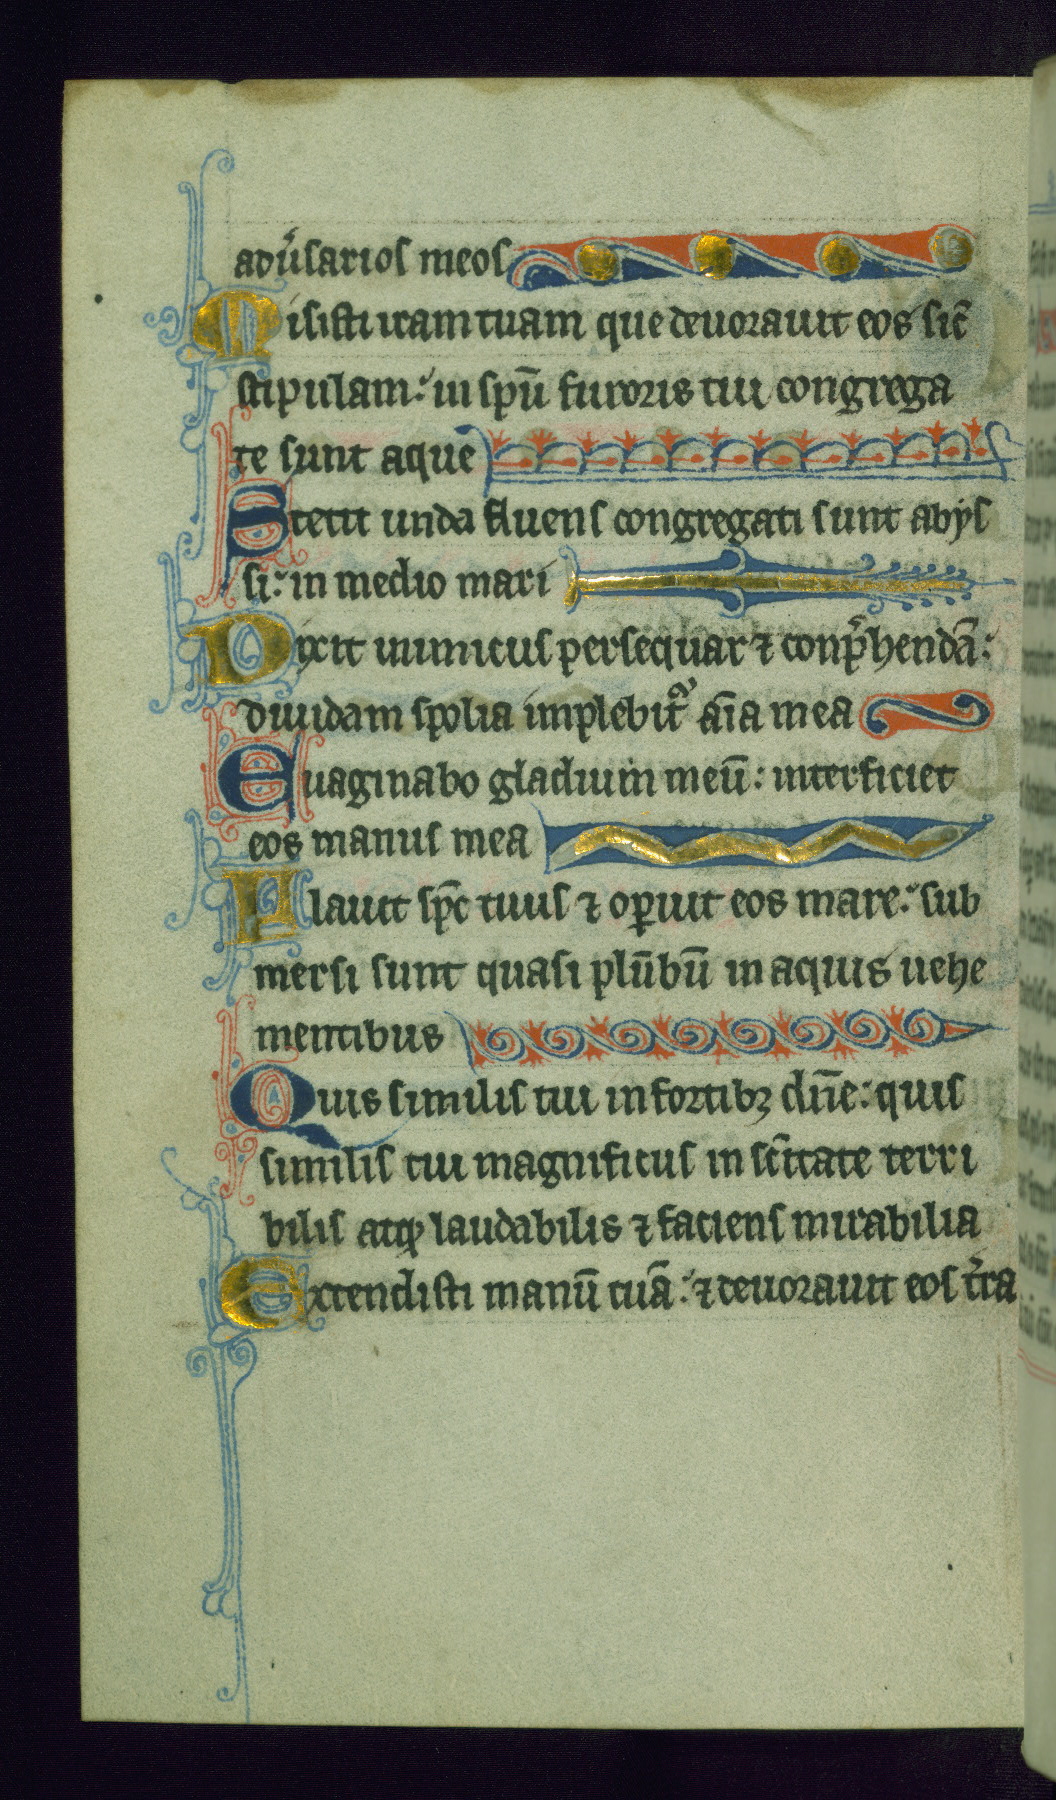 adũsarios meos
Misisti iram tuam que deuorauit eos sic̄
stipulam: in sp̄u furoris tui congrega
te sunt aque
Stetit unda fluens congregati sunt abys
si: in medio mari
Dixit inimicus persequar ⁊ conp̄hendā:
diuidam spolia implebit᷑ aīa mea
Euaginabo gladium meū: interficiet
eos manus mea
Flauit sp̄c tuus ⁊ oꝑuit eos mare: sub
mersi sunt quasi plūbū in aquis uehe
mentibus
Quis similis tui in fortibꝫ dn̄e: quis
similis tui magnificus in sc̄itate terri
bilis atqꝫ laudabilis ⁊ faciens mirabilia
Extendisti manū tuā: ⁊ deuorauit eos t̄ra